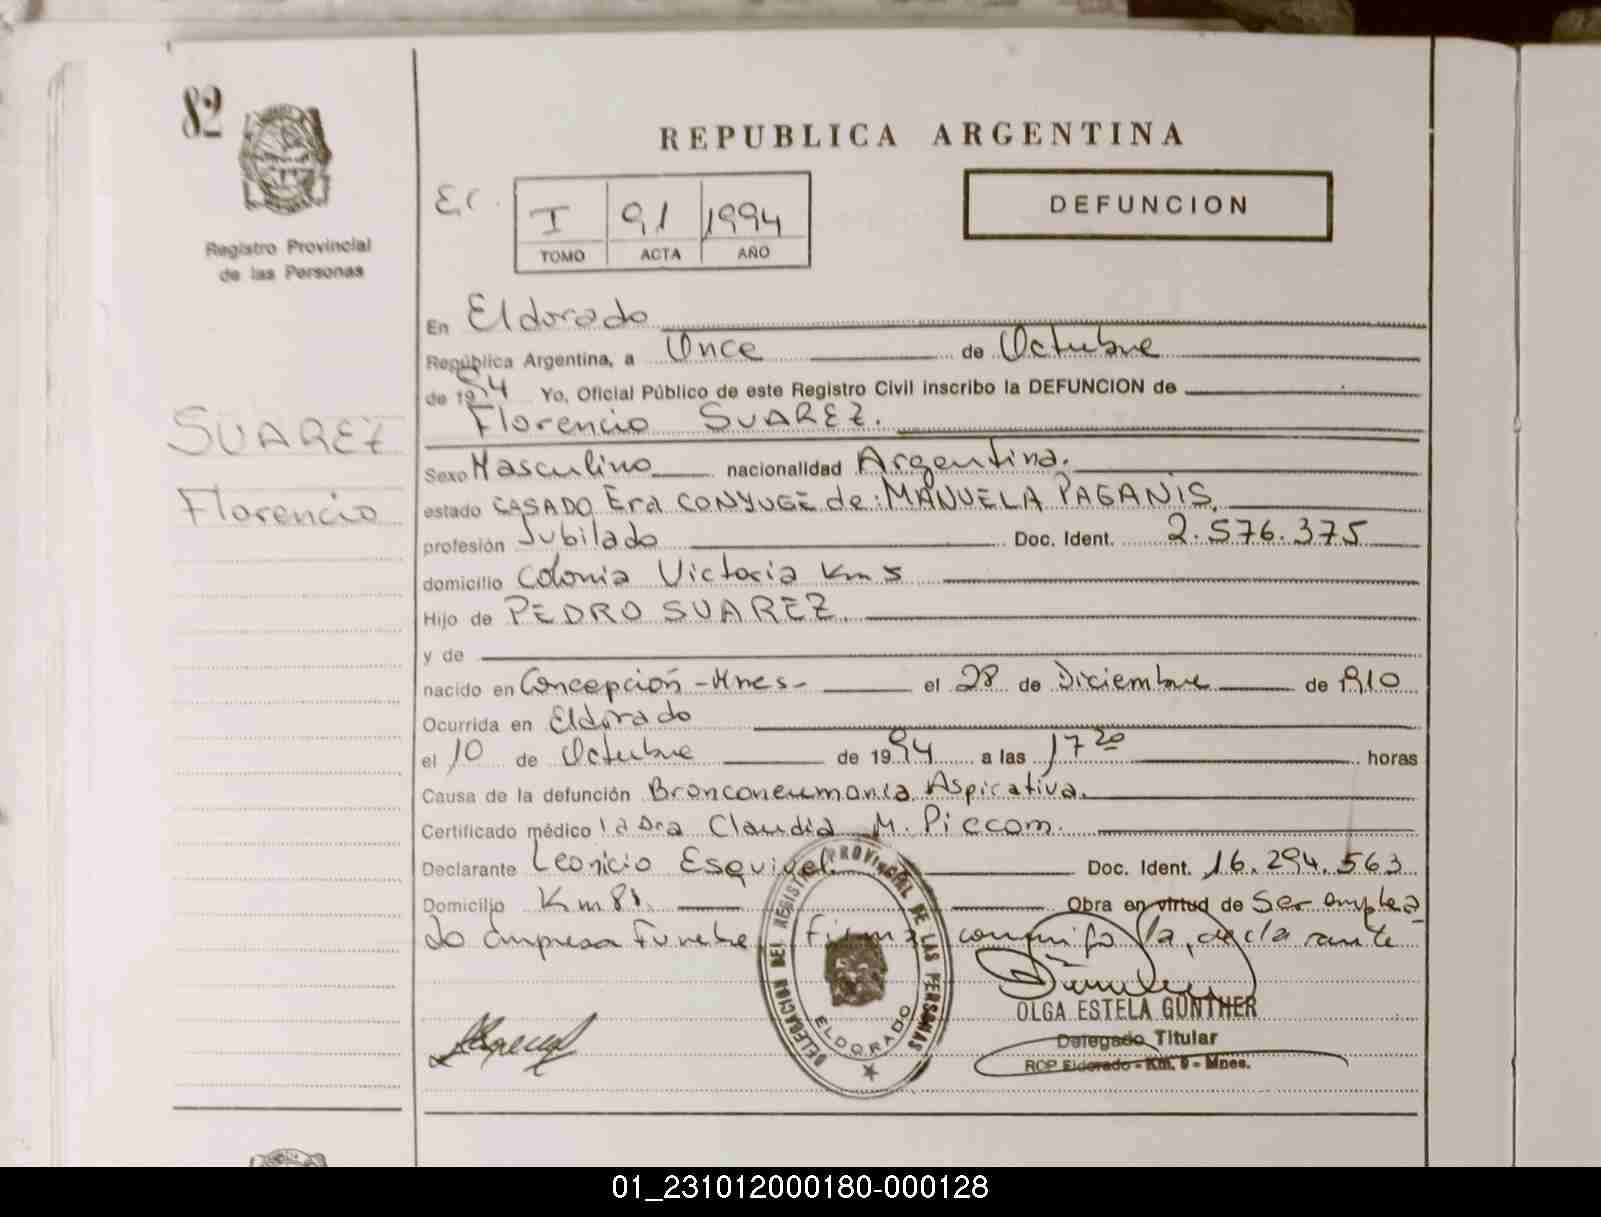 82
REPUBLICA ARGENTINA
DEFUNCION
E.C.
I 91 1994
TOMO ACTA AÑO
Registro Provincial
de las Personas
SUAREZ
Florencio
En Eldorado
República Argentina, a Once de Octubre
de 1994 Yo, Oficial Público de este Registro Civil inscribo la DEFUNCION de
Florencio SUAREZ.
Sexo Masculino nacionalidad Argentina.
estado CASADO Era CONYUGE de: MANUELA PAGANIS.
profesión Jubilado Doc. Ident. 2.576.375
domicilio Colonia Victoria Km 5
Hijo de PEDRO SUAREZ.
y de
nacido en Concepción -Mnes- el 28 de Diciembre de 1910
Ocurrida en Eldorado
el 10 de Octubre de 1994 a las 17 20 horas
Causa de la defunción Bronconeumonía Aspirativa.
Certificado médico la Dra Claudia M. Piccom.
Declarante Leonicio Esquivel Doc. Ident. 16.294.563
Domicilio Km 81. Obra en virtud de Ser emplea
do empresa funebre firma conmigo la declarante
DELEGACION DEL REGISTRO PROVINCIAL DE LAS PERSONAS
ELDORADO
OLGA ESTELA GÜNTHER
Delegado Titular
RCP Eldorado - Km. 9 - Mnes.
01_231012000180-000128